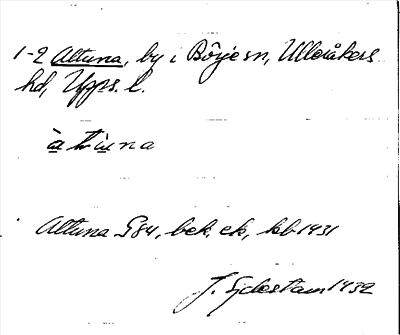 1-2 Altuna, by i Börje sn, Ulleråkers
hd, Upps. l.
Altuna G84, bek. ek, kb 1931
J. Sjöstam 1932